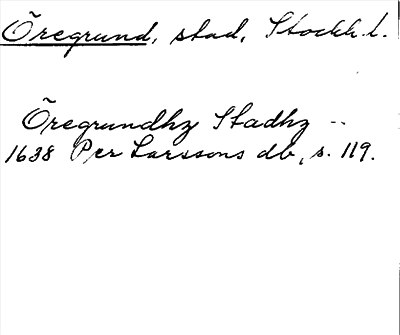 Öregrund, stad, Stockh. l.
Öregrundhz Stadhz --
1638 Per Larssons db, s. 119.